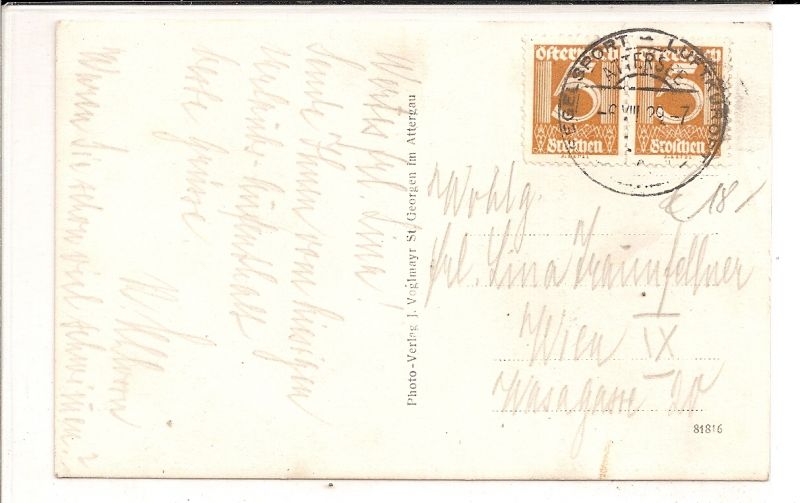 Wertes Frl. Lina!
Sende Ihnen vom hiesigen
Urlaubs-Aufenthalt
beste Grüsse.
Waren Sie schon viel schwimmen?
Photo-Verlag J. Voglmayr St. Georgen im Attergau
Österreich Österreich
15 15
Groschen Groschen
SEGELSPORT - LUFTKURORT
ATTERSEE
VIII 29 - 7
Wohlg.
Frl. Lina Traunfellner
Wien IX
Wasagasse 20
81816